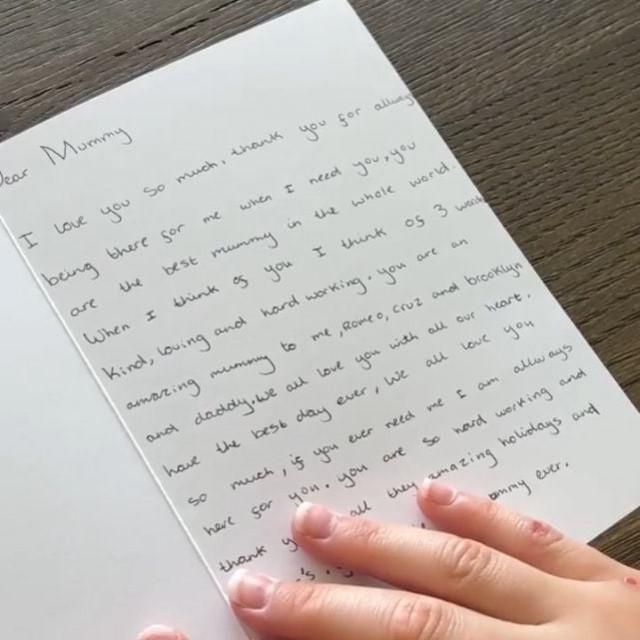 Dear Mummy
I love you so much, thank you for allway
being there for me when I need you, you
are the best mummy in the whole world.
When I think of you I think of 3 words
kind, loving and hard working. you are an
amazing mummy to me, Romeo, cruz and brooklyn
and daddy. we all love you with all our heart.
have the best day ever, we all love you
so much, if you ever need me I am allways
here for you. you are so hard working and
thank all the amazing holidays and
ever.